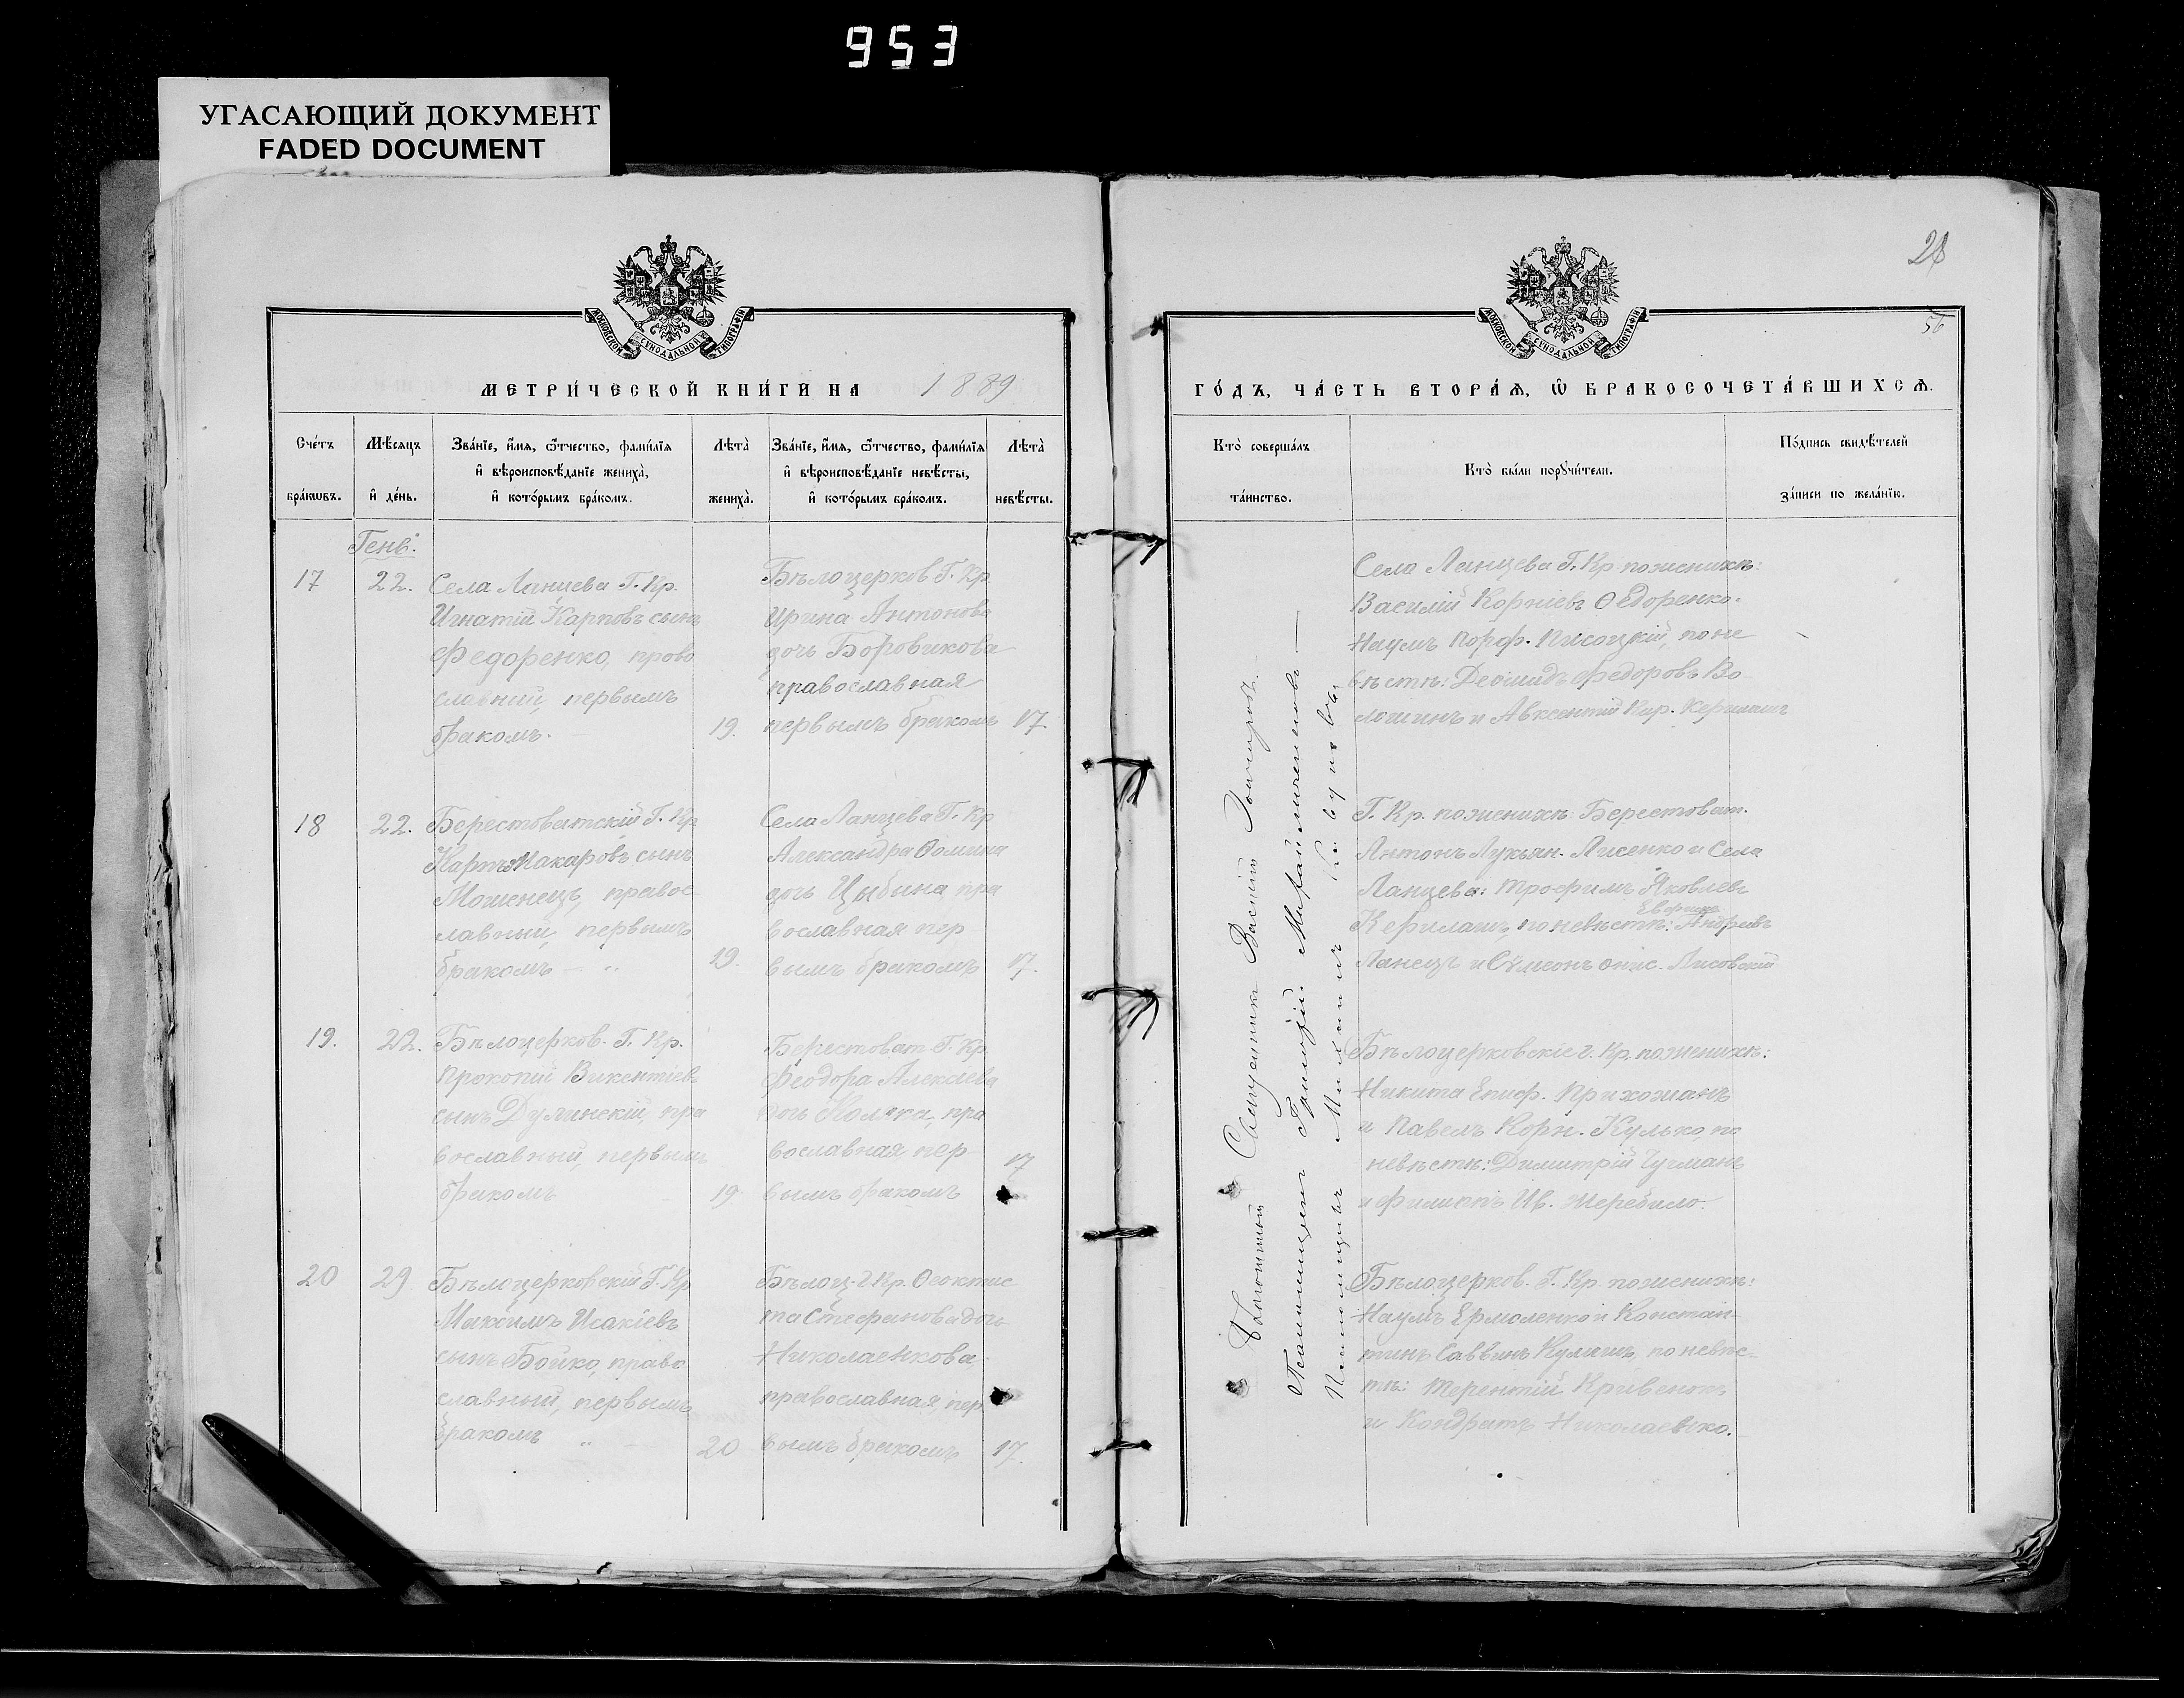 953
УГАСАЮЩИЙ ДОКУМЕНТ
FADED DOCUMENT
28
56
МОСКОВСКОЙ СѴНОДАЛЬНОЙ ТИПОГРАФІИ
МЕТРИ́ЧЕСКОЙ КНИ́ГИ НА 1889
Сче́тъ бра́кѡвъ.
Мѣ́сяцъ и҆ де́нь.
Зва́нїе, и҆́мѧ, ѻ҆́тчество, фами́лїѧ
и҆ вѣроисповѣ́данїе жениха̀,
и҆ кото́рымъ бра́комъ.
Лѣта̀ жениха̀.
Зва́нїе, и҆́мѧ, ѻ҆́тчество, фами́лїѧ
и҆ вѣроисповѣ́данїе невѣ́сты,
и҆ кото́рымъ бра́комъ.
Лѣта̀ невѣ́сты.
Генв.
17
22.
Села Ланцева Г. Кр.
Игнатій Карповъ сынъ
Федоренко, право
славний, первымъ
бракомъ.
19.
Бѣлоцерков Г. Кр
Ирина Антонова
дочь Боровикова
православная
первымъ бракомъ
17.
18
22.
Берестоватскій Г. Кр
Карпъ Макаровъ сынъ
Мошенецъ, правос
лавный, первымъ
бракомъ
19.
Села Ланцева Г. Кр
Александра Ѳомина
дочь Цыбина пра
вославная пер
вымъ бракомъ
17.
19.
22.
Бѣлоцерков. Г. Кр.
Прокопій Викентіевъ
сынъ Дулинскій, пра
вославный, первымъ
бракомъ
19
Берестоват Г. Кр
Феодора Алексіева
дочь Коляка, пра
вославная пер
вымъ бракомъ
17
20
29
Бѣлоцерковскій Г. Кр
Максимъ Исакіевъ
сынъ Бойко, право
славный, первымъ
бракомъ
20
Бѣлоц. Г Кр. Ѳеоктис
та Стефанова дочь
Николаенкова,
православная, пер
вымъ бракомъ
17.
МОСКОВСКОЙ СѴНОДАЛЬНОЙ ТИПОГРАФІИ
ГО́ДЪ, ЧА́СТЬ ВТОРА́Ѧ, Ѡ҆ БРАКОСОЧЕТА́ВШИХСѦ.
Кто̀ соверша́лъ
та́инство.
Кто̀ бы́ли порꙋчи́тели.
По́дпись свидѣ́телей
за́писи по жела́нїю.
Священникъ Василій
Псаломщикъ Григорій
Псаломщикъ
Села Ланцева Г. Кр по женихѣ:
Василій Корніевъ Ѳедоренко.
Наумъ Порф. Писоцкій, по не
вѣстѣ: Деомидъ Федоровъ Во
лошинъ и Авксентій Кир. Керилашъ
Г. Кр. по женихѣ: Берестоват.
Антонъ Лукьян. Лисенко и Села
Ланцева: Трофимъ Яковлевъ
Керилашъ, по невѣстѣ: Андреевъ
Ланецъ и Сѵмеонъ Онис. Лисовскій
Бѣлоцерковскіе г. Кр. по женихѣ:
Никита Епиф. Прихожанъ
и Павелъ Корн. Кулько, по
невѣстѣ: Димитрій Чугманъ
и Филипъ Ив. Жеребило.
Бѣлоцерков. Г. Кр по женихѣ:
Наумъ Ермоленко и Констан-
тинъ Саввинъ Кулишъ, по невѣс-
тѣ: Терентій Кривенотъ
и Кондратъ Николаенко.